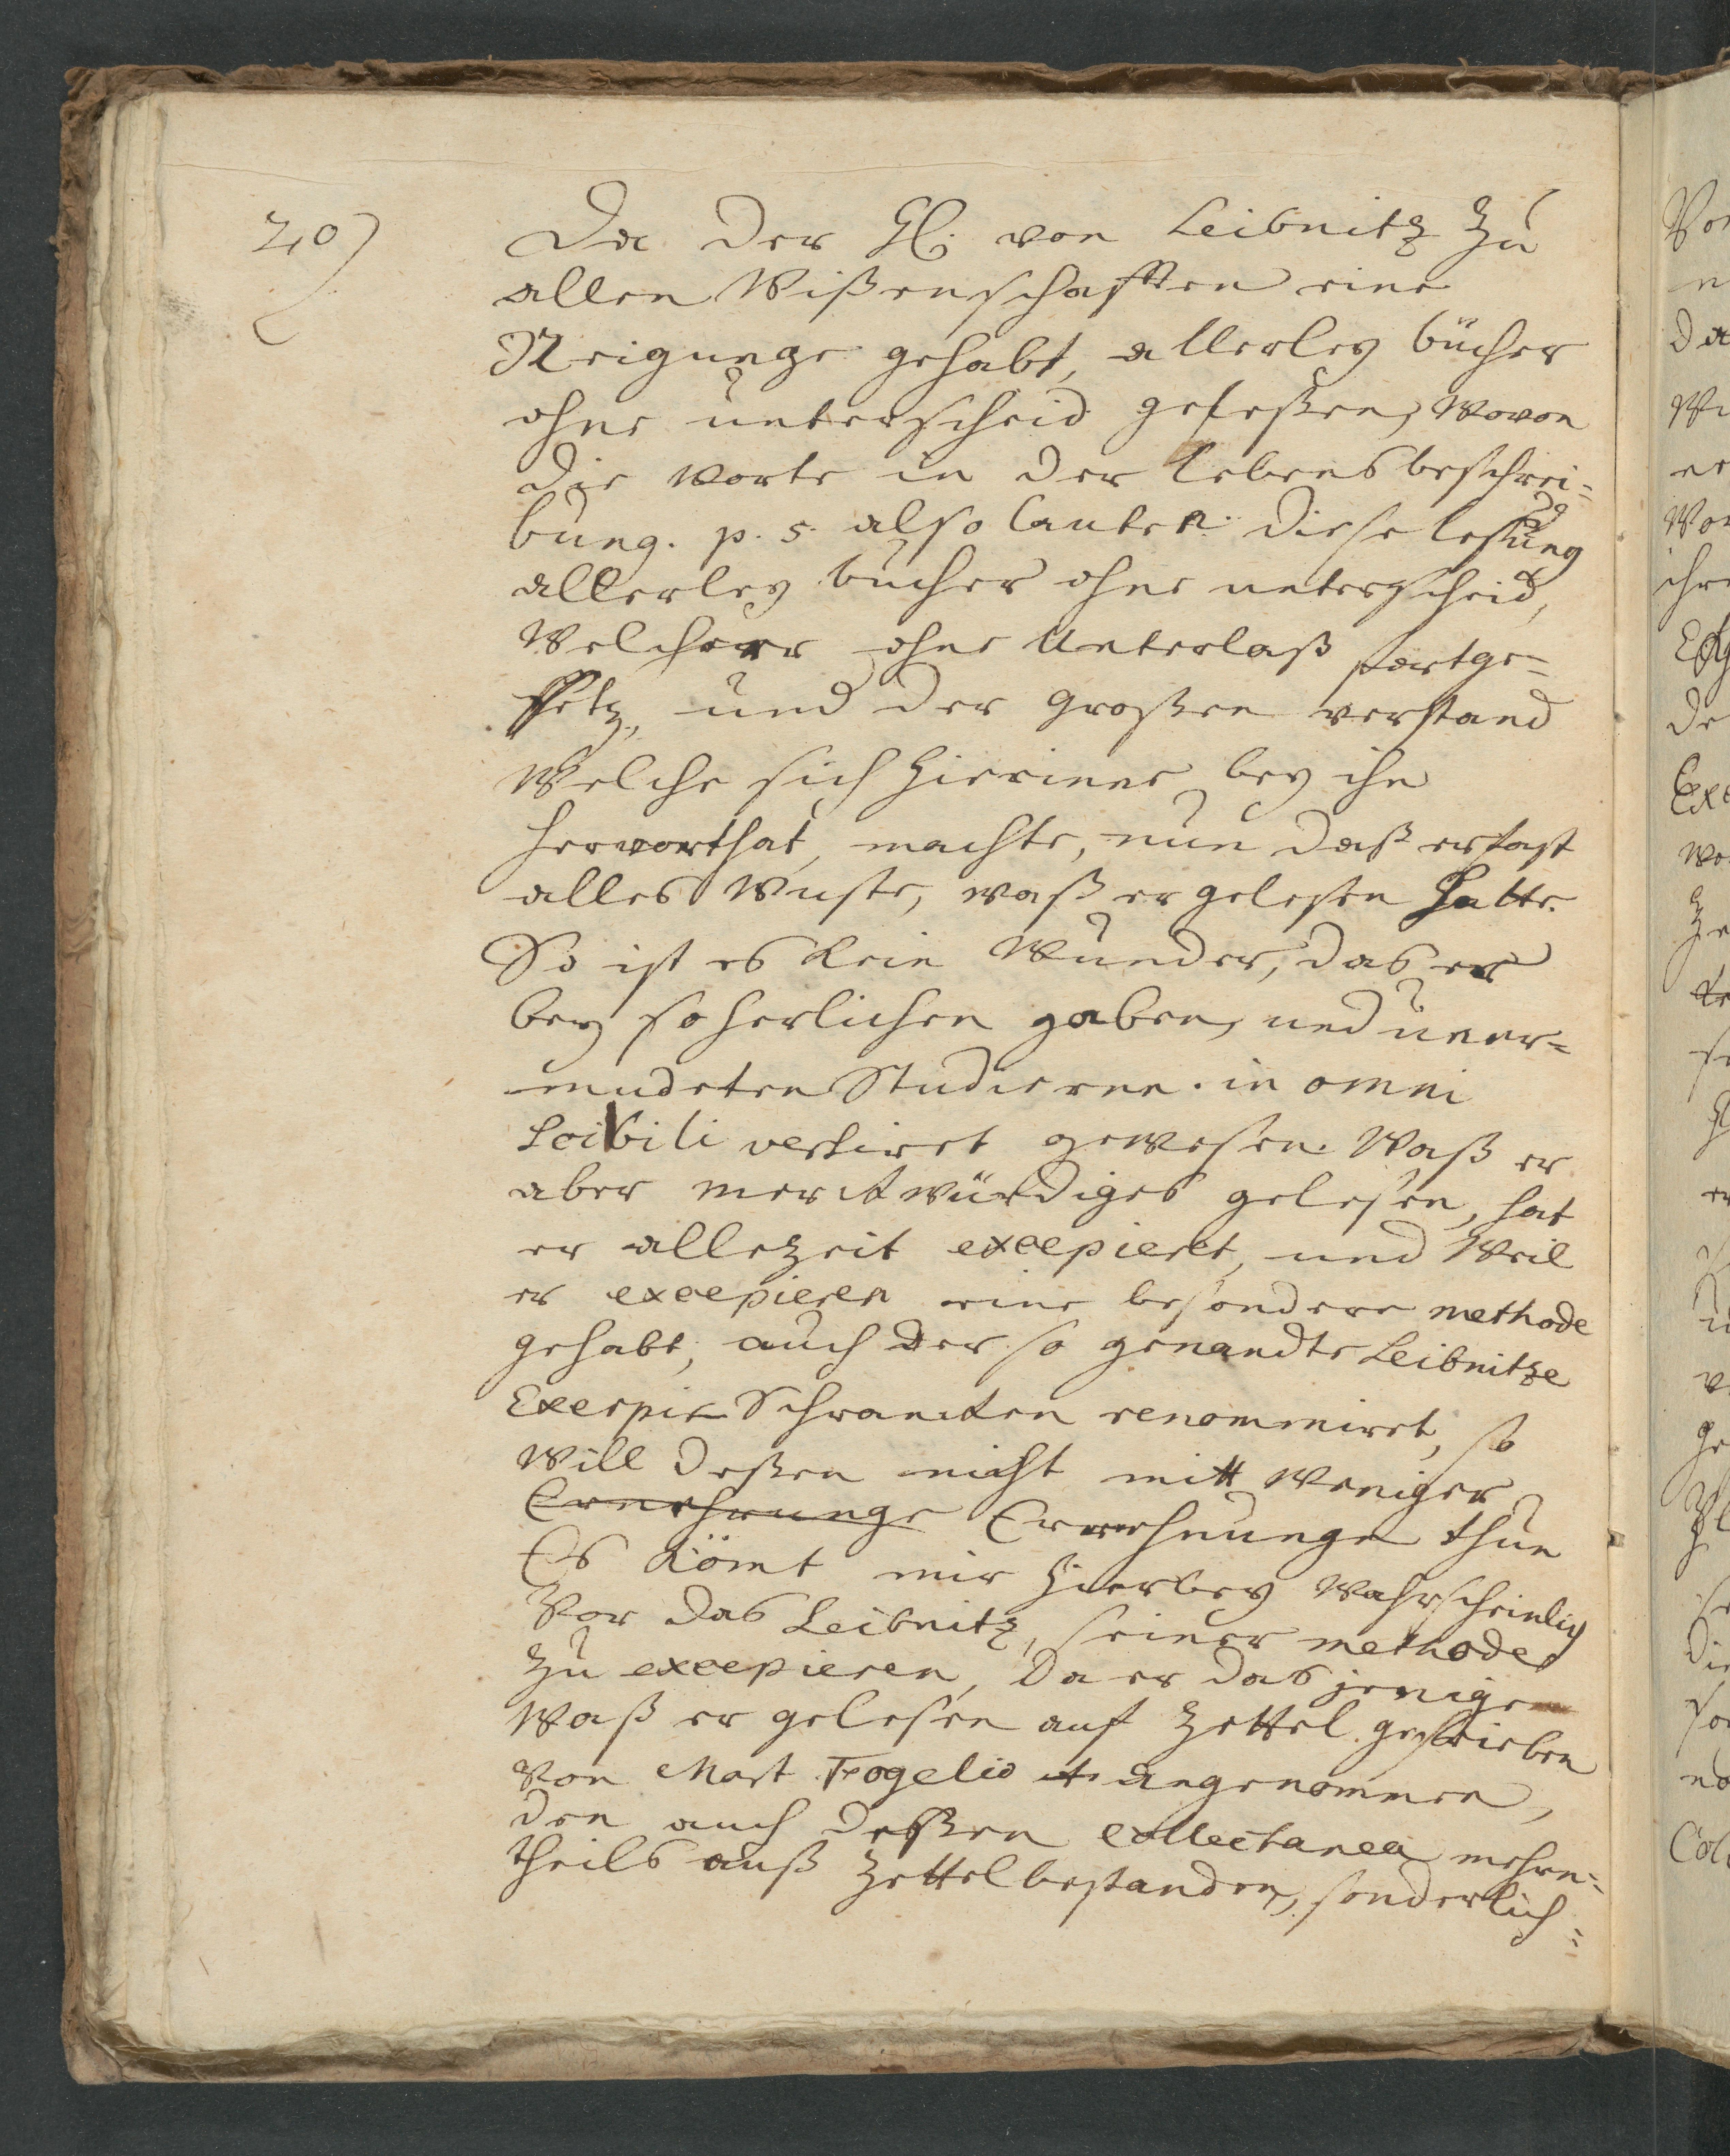 40)
Da der H. von Leibnitz zu
allen Wißenschafften eine
Neigunge gehabt, allerley bücher
ohne unterscheid geleßen, wovon
die worte in der Lebensbeschrei=
bung. p. 5. also lauten: diese lesung
allerley bücher ohne unterscheid,
Welche er ohne Unterlaß fortge=
setz, und der großen verstand
Welche sich hierinne bey ihn
hervorthat, machte, nun daß er fast
alles wuste, waß er gelesen hatte.
So ist es kein Wunder, das er
bey so herlichen gaben, und uner=
mudeten Studieren. in omni
Scibili versiret gewesen. Waß er
aber merckwürdiges gelesen, hat
er allezeit excepieret, und Weil
er excepieren eine besondere methode
gehabt, auch der so genandte Leibnitze
Excerpir Schrancken renommiret, so
will deßen nicht mitt weniger
Ernehrunge Erwehnunge thun
Es kömt mir hierbey wahrscheinlich
Vor das Leibnitz, seiner methode
zu excepieren, da er das jenige
Waß er gelesen auf zettel geschrieben
Von Mart Fogelio angenommen,
den auch deßen collectanea mehren=
theils auß zettel bestanden, sonderlich=
Vor
n
da
Wi
er
Wor
ihre
de
Exc
wo
ge
Col